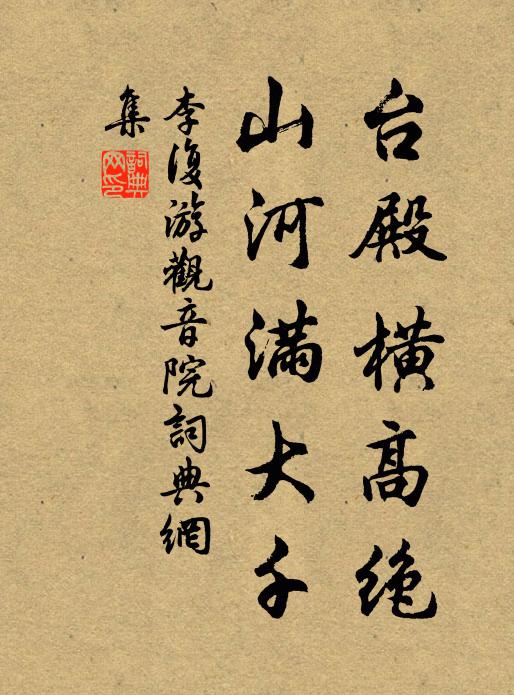 台殿橫高绝
山河滿大千
李復游觀音院詞典網
集
詞典网印